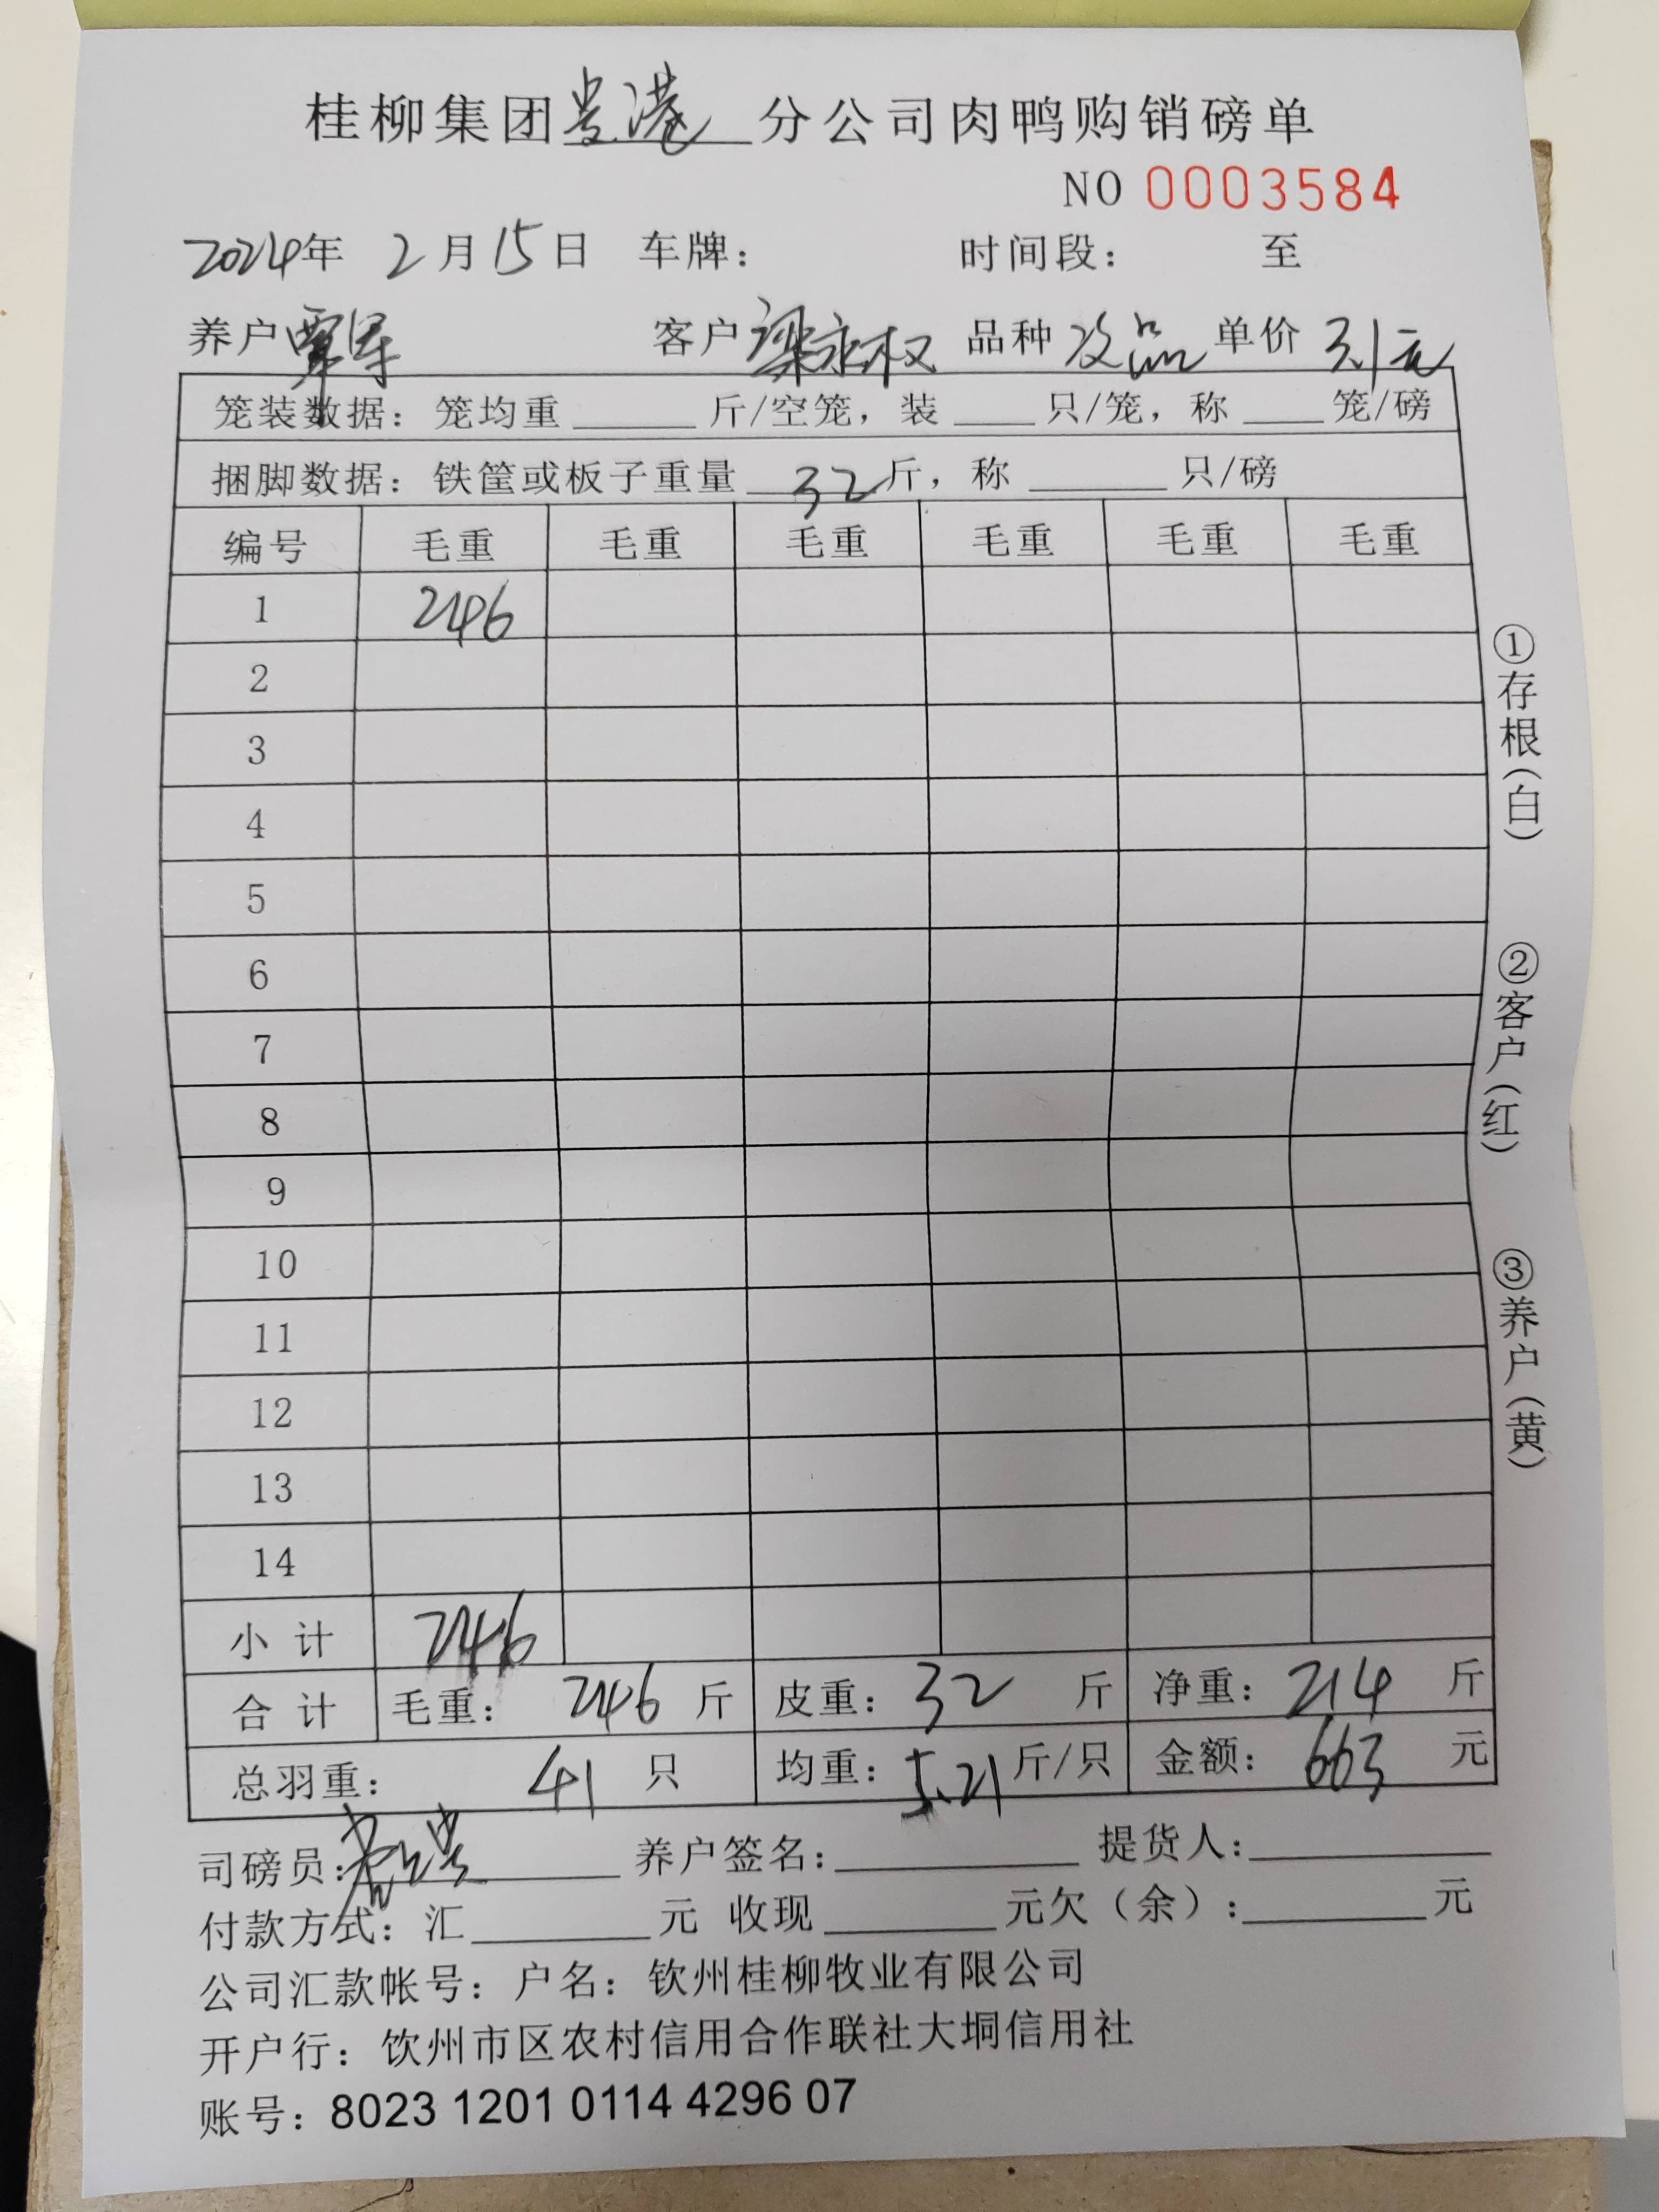 桂柳集团贵港分公司肉鸭购销磅单
NO 0003584
2024年 2月15日 车牌： 时间段： 至
养户覃军 客户梁永权 品种次品 单价3.1元
笼装数据：笼均重 斤/空笼，装 只/笼，称 笼/磅
捆脚数据：铁筐或板子重量 32斤，称 只/磅
编号 毛重 毛重 毛重 毛重 毛重 毛重
1 246
2
3
4
5
6
7
8
9
10
11
12
13
14
小计 246
合计 毛重： 246 斤 皮重： 32 斤 净重： 214 斤
总羽重： 41 只 均重：5.21斤/只 金额： 663 元
司磅员： 养户签名： 提货人：
付款方式：汇 元 收现 元欠（余）： 元
公司汇款帐号：户名：钦州桂柳牧业有限公司
开户行：饮州市区农村信用合作联社大垌信用社
账号：8023 1201 0114 4296 07
①存根（白）
②客户（红）
③养户（黄）